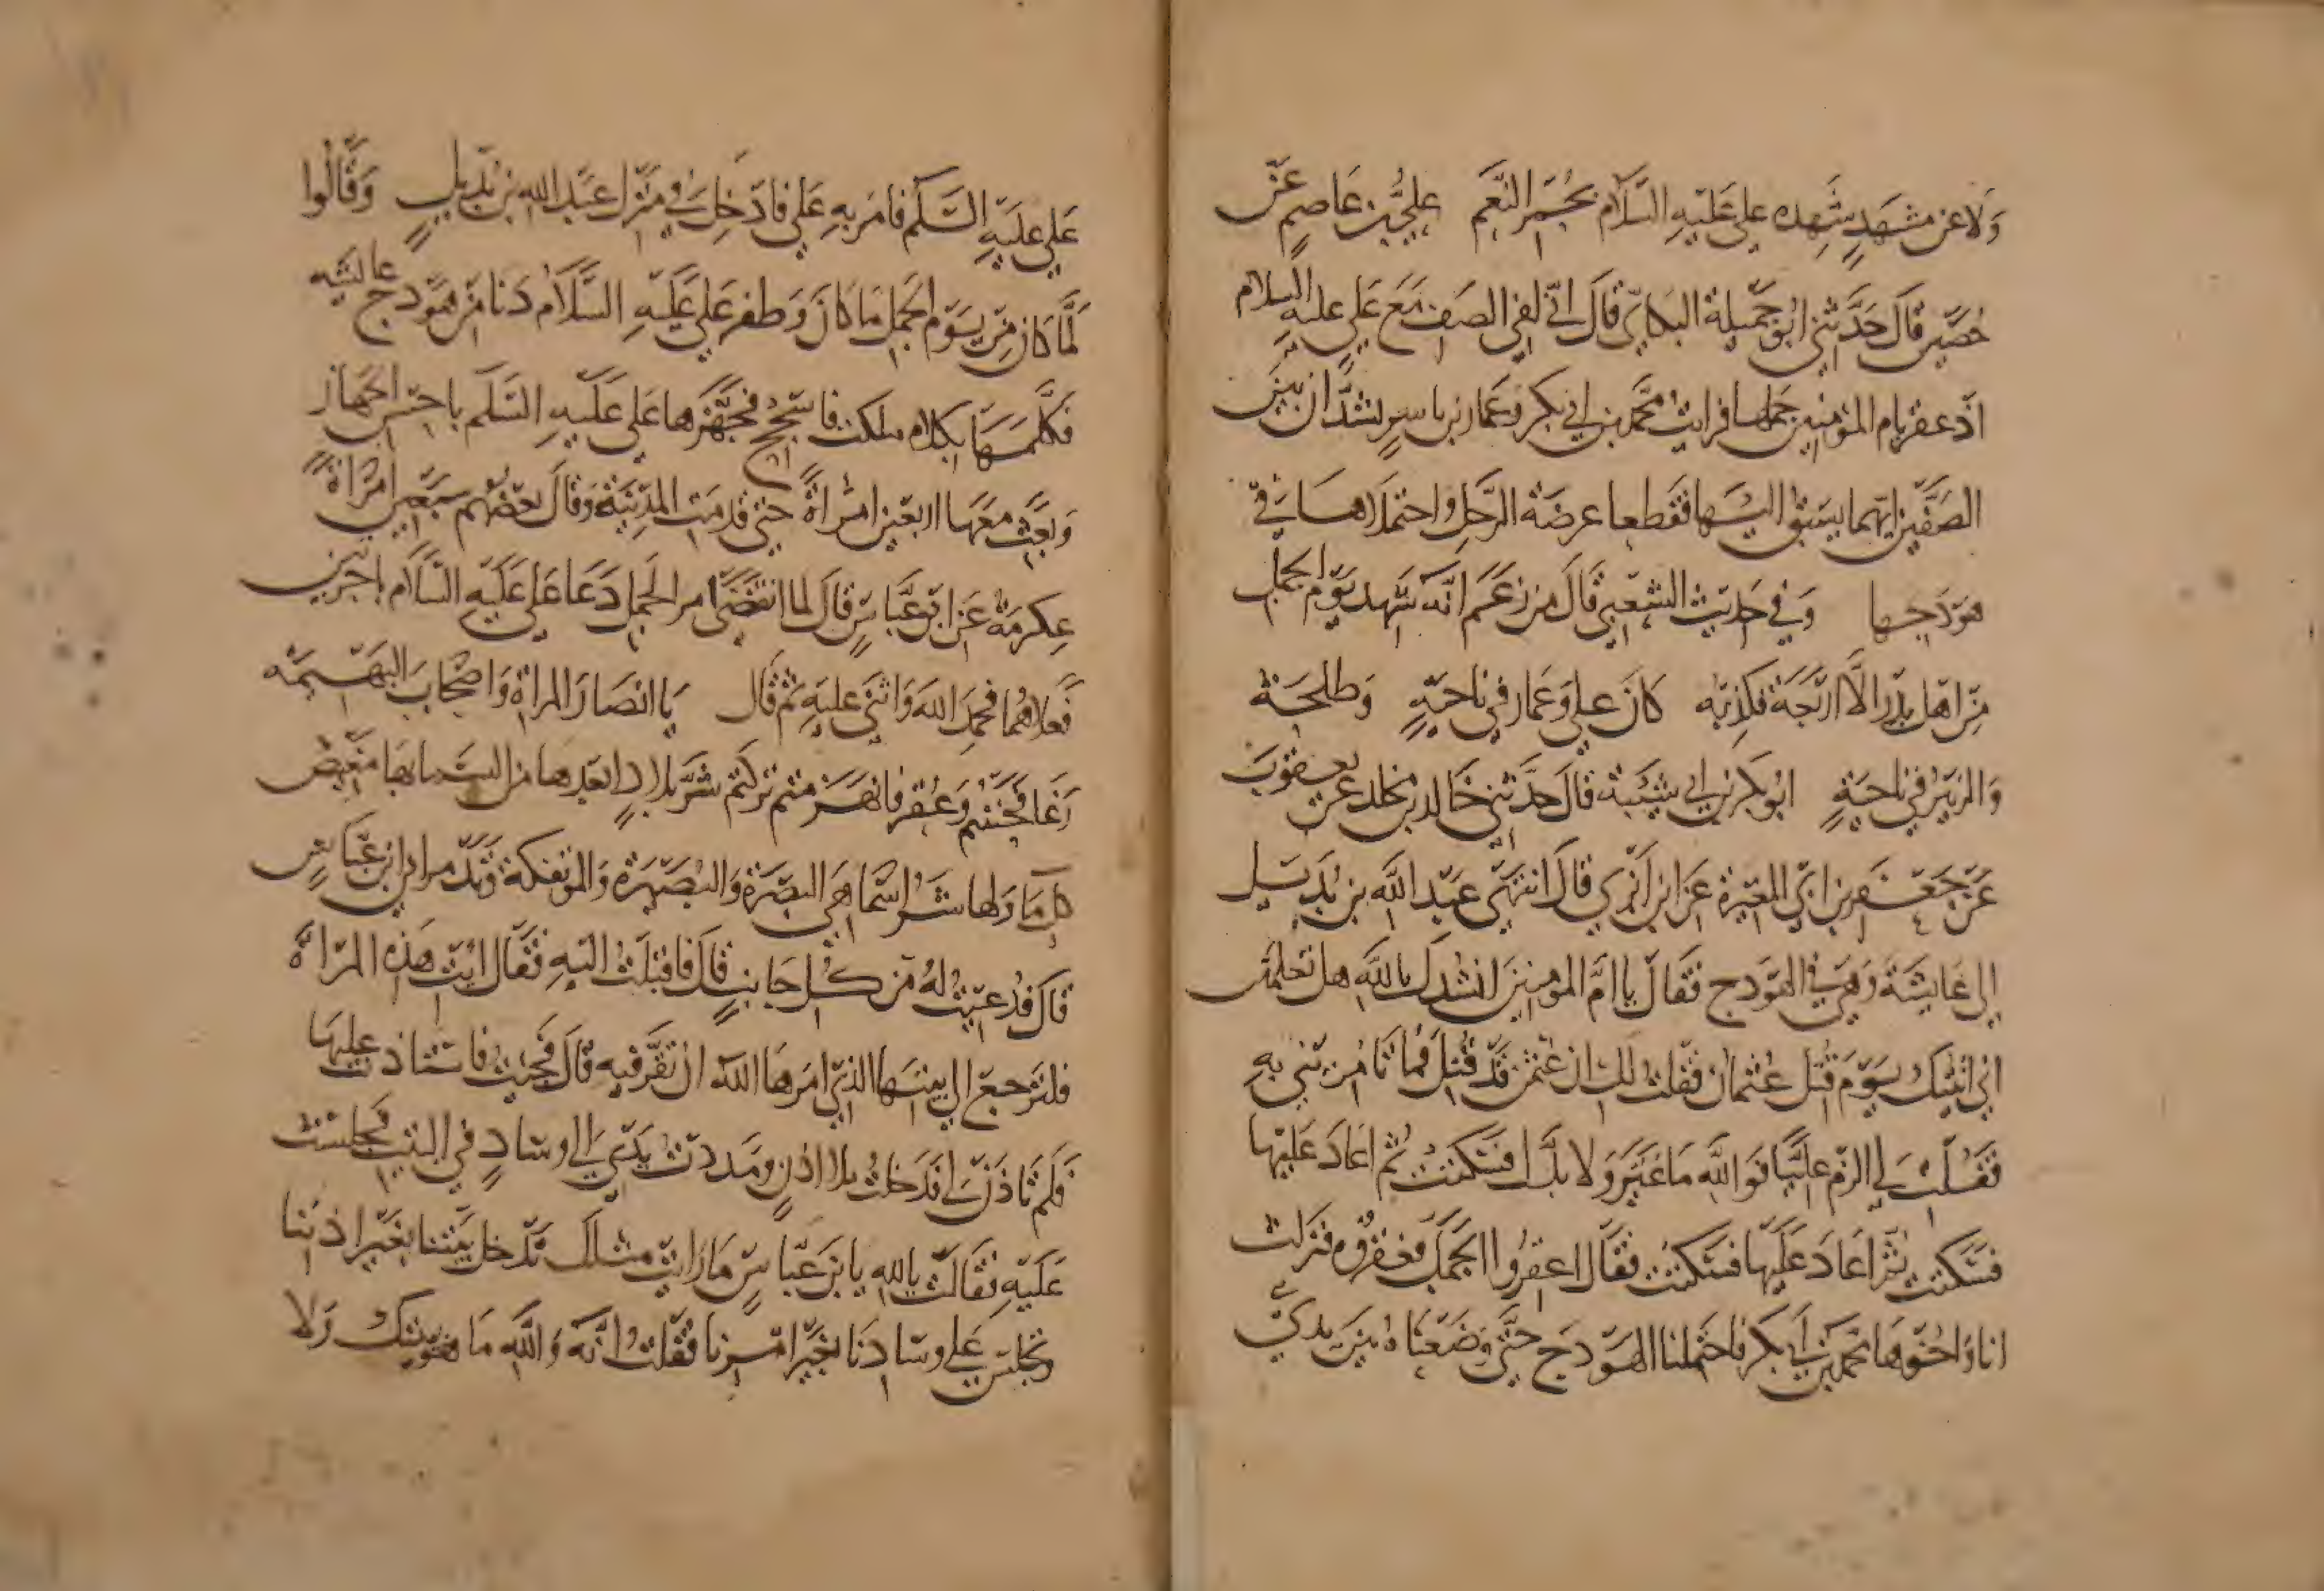 وَلا عن مشهَدٍ شهِده علي عَليْهِ السَّلام بحُمْر النَّعَم علي بن عَاصمٍ عَنْ
حُصَين قالَ حَدَّثني ابُو جَميلة البكايّ قال انّي لفي الصَف مَعَ علي عليه السلام
اذ عقر بام المؤمنين جملها فرايت محمّد بن ابي بكر وعَمار بن ياسرٍ يشتدّان بَين
الصَفّين ايّهما يسبق اليْها فقطعا عرضَة الرّحل واحتملاها في
هَوْدَجها وَفي حَديث الشعْبي قَالَ من زعَم انّه شهد يَوْم الجمل
مِن اهل بدر الّا ارْبَعَة فكذبه كانَ علي وَعَمار في ناحيَةٍ وَطلحَة
وَالزبَيْر في ناحيَةٍ ابُو بَكر بن ابي شيْبَة قال حدَّثني خالد بن مخلد عن يعقوبَ
عَنْ جَعْفَر بن ابي المغيرة عَن ابن ابزى قالَ انتهَى عبْد الله بن بُدَيْل
الى عَايشَةَ وَهيَ في الهَوْدج فقَالَ يا امَّ المومنينَ انشدكِ بالله هل تعلمين
اني اتيتك يَوْمَ قُتِل عُثمان فقلت لك ان عثمن قَدْ قُتِل فما تامُريني به
فقلت لي الزم عليًّا فوَالله مَا غيَّرَ وَلا بدَّل فسَكتتْ ثُم اعَادَ عَليْها
فسَكتت ثمّ اعَادَ عَليهَا فسكتتْ فقَال اعقرُوا الجَمَل فعَقرُوه فنزلت
انا وَاخُوهَا محمد بن ابي بكر فاحتملنا الهَوْدَج حتَّى وَضَعْناهُ بَين يدي
عَلي عليْهِ السَّلم فامَر بهِ عَلي فادْخل في مَنْزل عبْد الله بن بُديلٍ وَقَالُوا
لَمَّا كان مِنْ يَوْم الجمل مَا كَانَ وَظفر عَلي عَليْهِ السَّلَام دَنا من هَوْدج عايشه
فَكلّمهَا بكلام ملكت فاسجحْ فجَهَّزها عَلي عَليْهِ السَّلَم باحسن الجهاز
وَبَعَث مَعَهَا اربَعين امراةً حتى قدمَت المدينَة وَقالَ بَعضهُم سَبْعين امْرَاةً
عِكرمَة عَن ابن عبَّاسٍ قال لما انقضَى امر الجَمل دَعَا عَلي عَليْهِ السَّلام باجرتين
فعَلاهُمَا فحمدَ اللهَ وَاثنى عليهِ ثم قال يَا انصَارَ المراة وَاصْحَابَ البَهيمَه
رَغا فجئتم وَعُقر فانهَزمتم نزلتم شرَّ بلادٍ ابعَدها من السَّما بها مَغيض
كل مَا وَلها شرّ اسْما هي البَصْرَة وَالبُصَيْرَة وَالموتفكة وَتدْمر اين ابن عبّاسٍ
قال فدُعيتُ لهُ من كُل جَانبٍ قالَ فاقبَلتُ اليْهِ فقَال ايْت هَذه المرْاة
فلتَرْجعْ الى بيتهَا الذي امَرهَا الله ان تقرّ فيه قالَ فجيْت فاستاذنت عليهَا
فلم تاذَنْ لي فدَخلتُ بلا اذنٍ وَمَددت يَدي الى وسَادٍ في البيت فجلسْت
عَليْهِ فقَالتْ بالله يا بن عَبّاسٍ مَا رَايْت مثلكَ تدْخل بَيتنا بغَير اذننا
وَتجلس عَلى وسَادنَا بغَير امْرنا فقلتُ انّه وَالله مَا هوَ بَيْتك وَلا